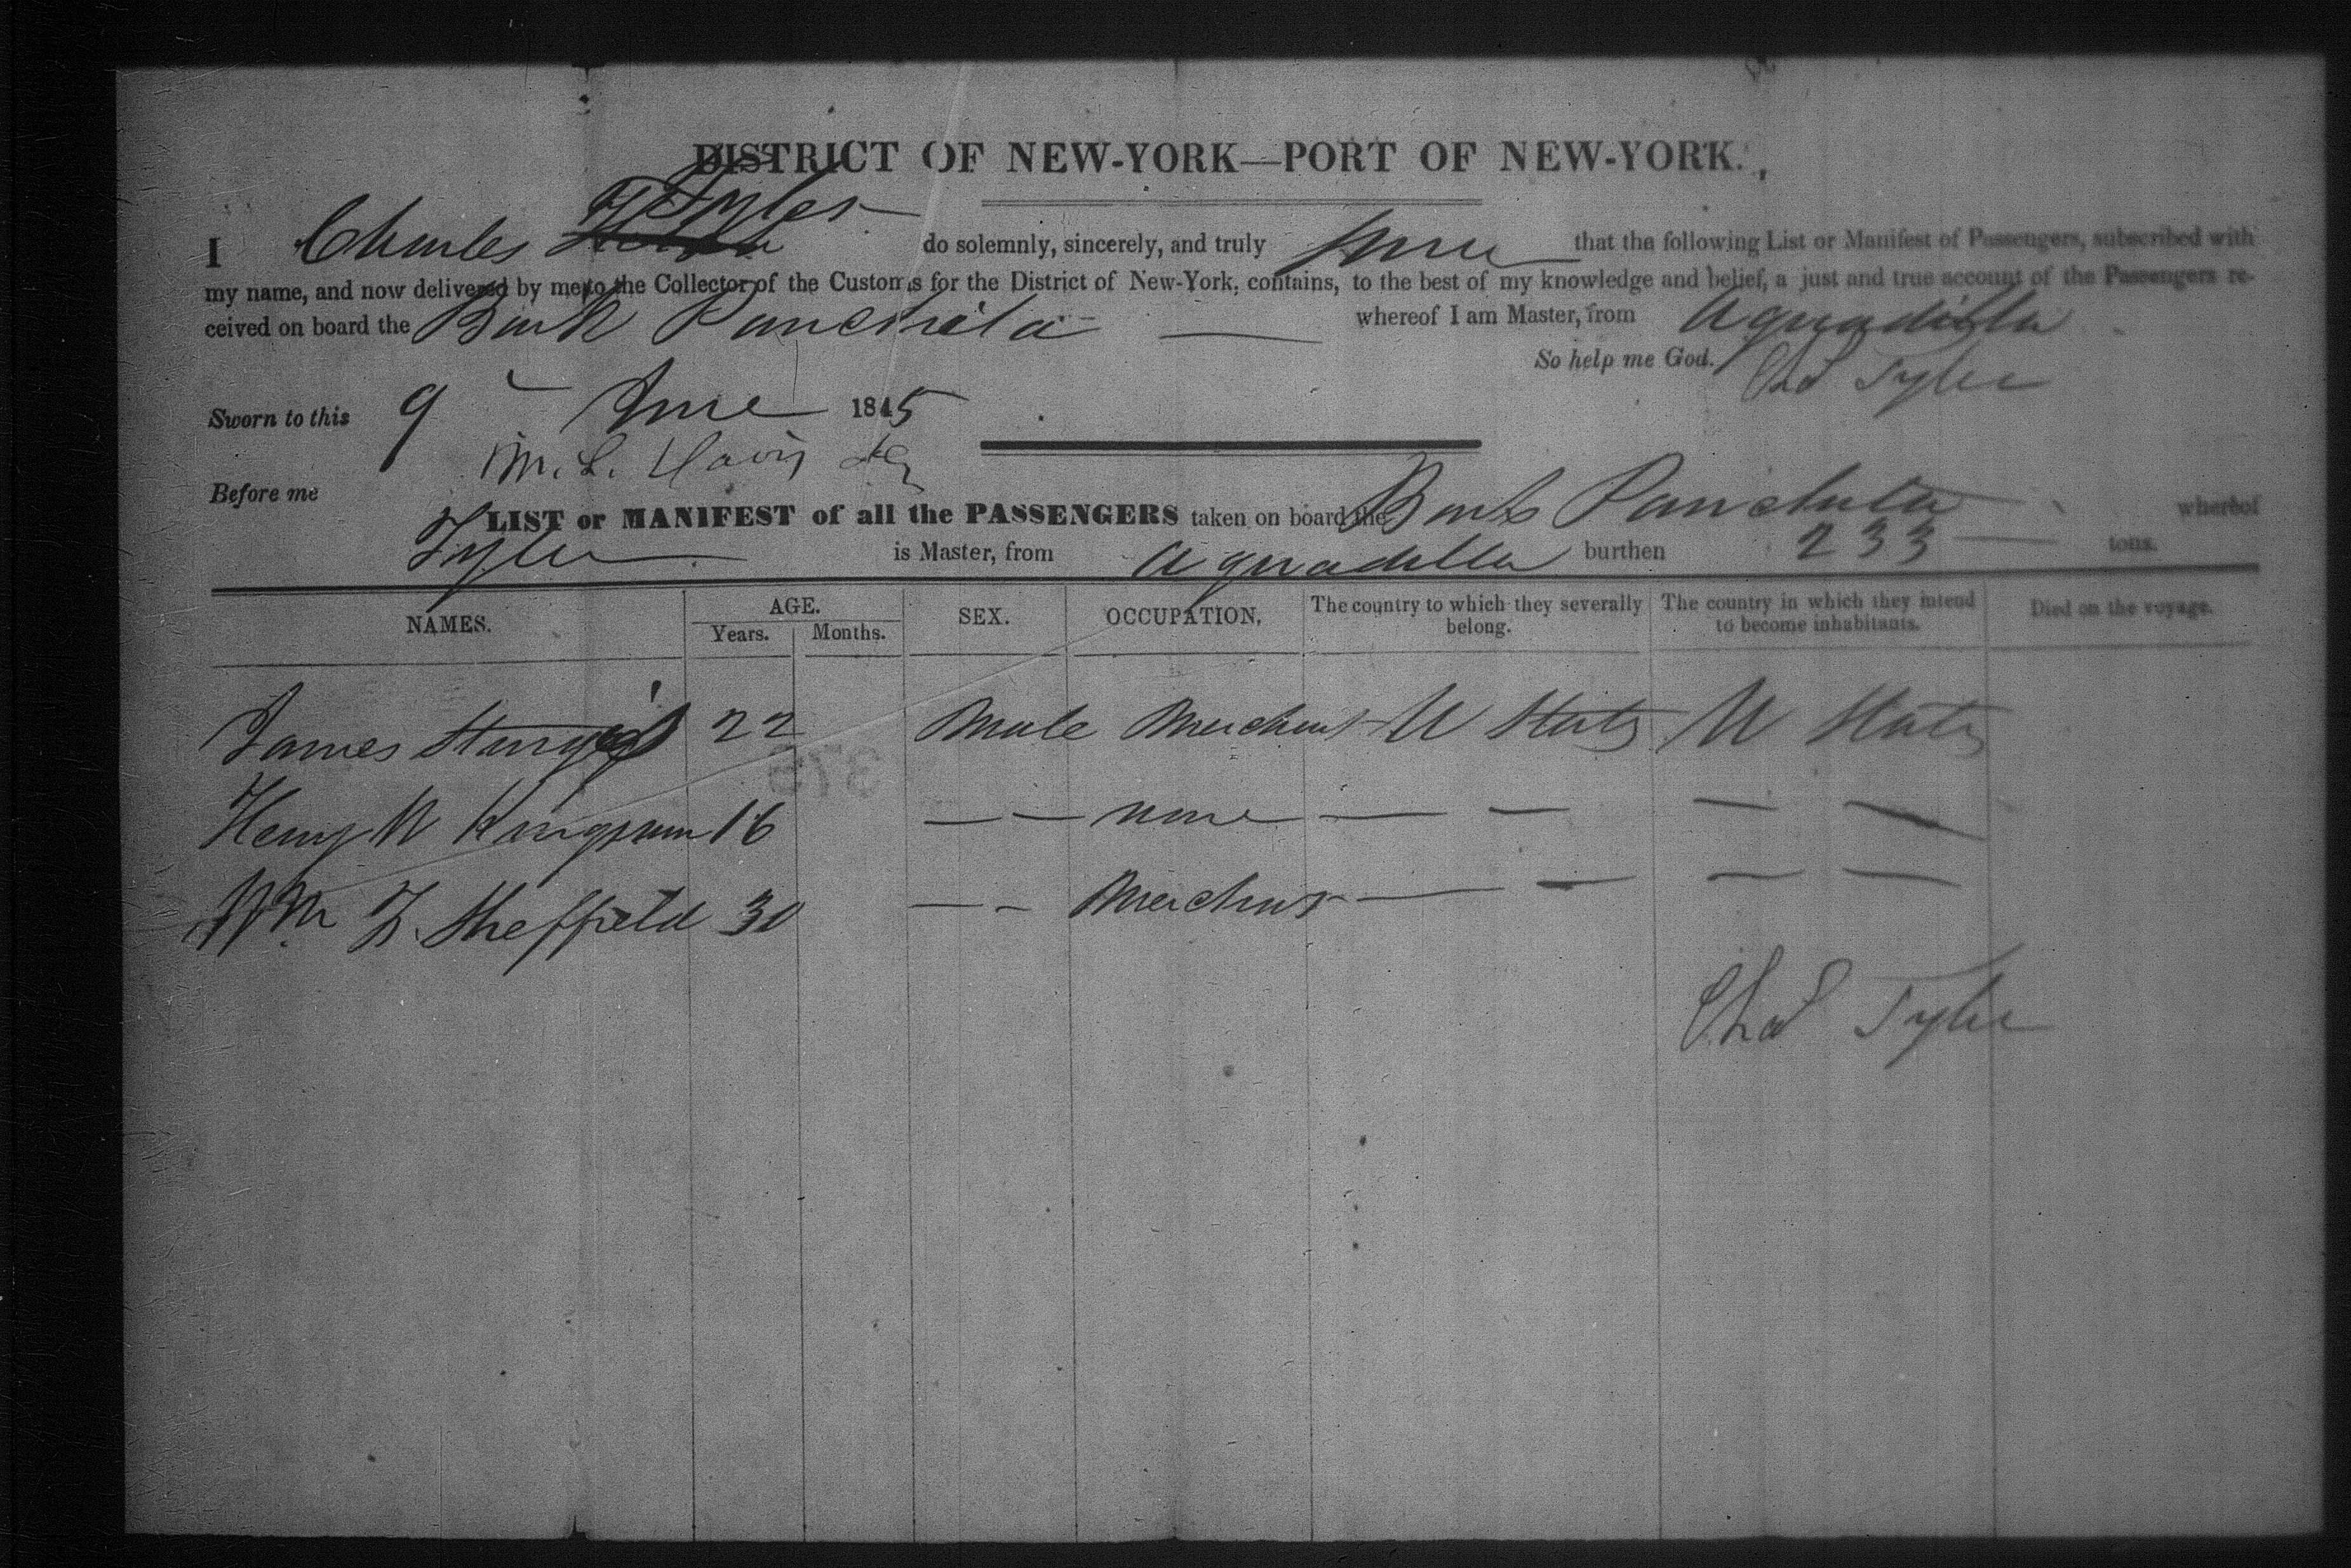 DISTRICT OF NEW-YORK—PORT OF NEW-YORK.
Tyler
I Charles do solemnly, sincerely, and truly swear that the following List or Manifest of Passengers, subscribed with
my name, and now delivered by me to the Collector of the Customs for the District of New-York, contains, to the best of my knowledge and belief, a just and true account of the Passengers re-
ceived on board the Bark Panchita whereof I am Master, from Aguadilla
So help me God. Chs Tyler
Sworn to this 9 June 1845
Before me M. L. Davis
LIST or MANIFEST of all the PASSENGERS taken on board the Bark Panchita whereof
Tyler is Master, from Aguadilla burthen 233 tons.
NAMES. AGE. Years. Months. SEX. OCCUPATION. The country to which they severally belong. The country in which they intend to become inhabitants. Died on the voyage.
James Sturges 22 Male Merchant U States U States
Henry W 16 — — none — — — —
Wm F. Sheffield 30 — — Merchant — — — —
Chs Tyler